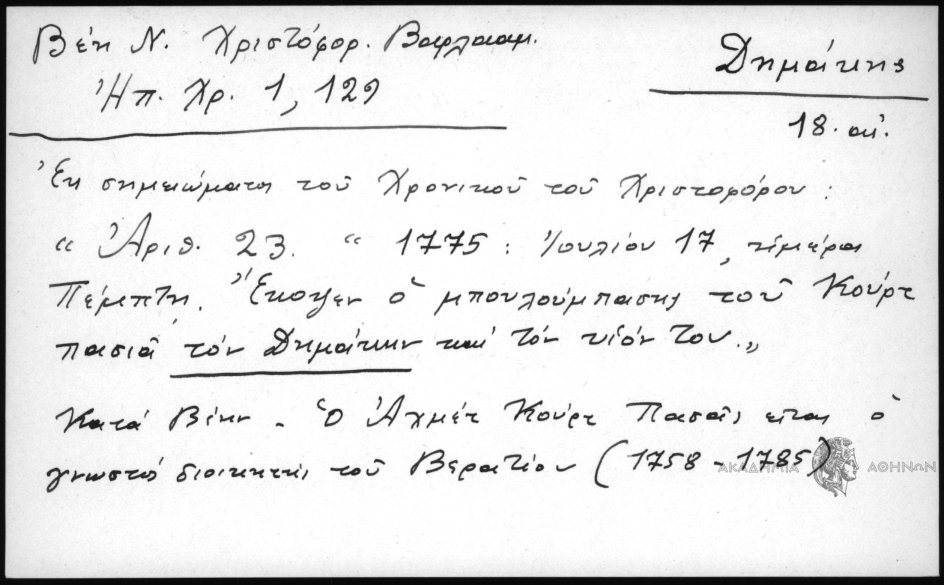 Βέη Ν. Χριστόφορ. Βαρλααμ.
Ἠπ. Χρ. 1, 129
Δημάκης
18. αἰ.
Ἐκ σημειώματα τοῦ Χρονικοῦ τοῦ Χριστοφόρου:
“ Ἀριθ. 23. “ 1775: Ἰουλίου 17, ἡμέρα
Πέμπτη. Ἔκοψεν ὁ μπουλούμπασης τοῦ Κούρτ
πασιᾶ τόν Δημάκην καί τόν υἱόν του.„
Κατά Βέην - Ὁ Ἀχμέτ Κούρτ Πασᾶς εἶναι ὁ
γνωστός διοικητής τοῦ Βερατίου (1758 - 1785)
ΑΚΑΔΗΜΙΑ ΑΘΗΝΩΝ